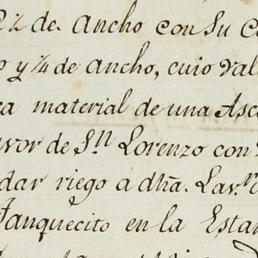 2½ de Ancho con su C
o y ¼ de ancho, cuio val
ca material de una Asc
avor de Sⁿ Lorenzo con
dar riego á dhã. Lav.ⁿ
Tanquecito en la Estan